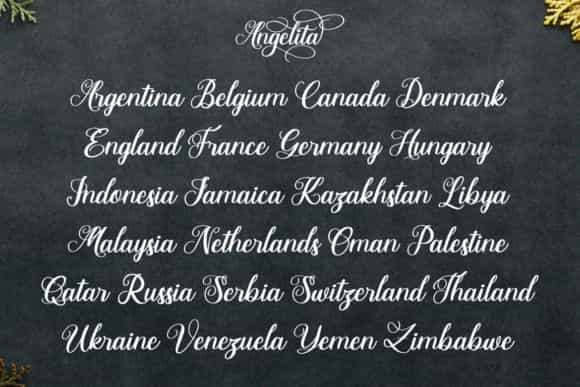 Angelita
Argentina Belgium Canada Denmark
England France Germany Hungary
Indonesia Jamaica Kazakhstan Libya
Malaysia Netherlands Oman Palestine
Qatar Russia Serbia Switzerland Thailand
Ukraine Venezuela Yemen Zimbabwe